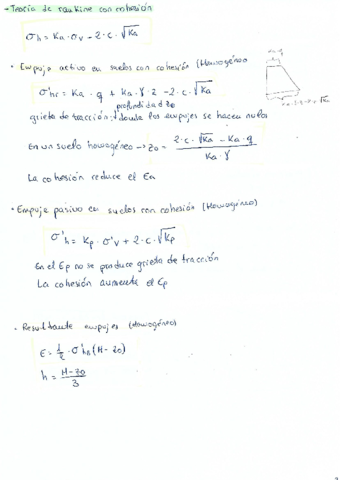 → Teoría de rankine con cohesión
σh = Ka · σv - 2 · c · √Ka
· Empuje activo en suelos con cohesión (Homogéneo)
σ'hc = Ka · q + Ka · γ · z - 2 · c · √Ka
profundidad zo
grieta de tracción: donde los empujes se hacen nulos
En un suelo homogéneo → zo = (2 · c · √Ka - Ka · q) / (Ka · γ)
La cohesión reduce el Ea
· Empuje pasivo en suelos con cohesión (Homogéneo)
σ'h = Kp · σ'v + 2 · c · √Kp
En el Ep no se produce grieta de tracción
La cohesión aumenta el Ep
· Resultante empujes (Homogéneo)
E = 1/2 · σ'ha (H - zo)
h = (H - zo) / 3